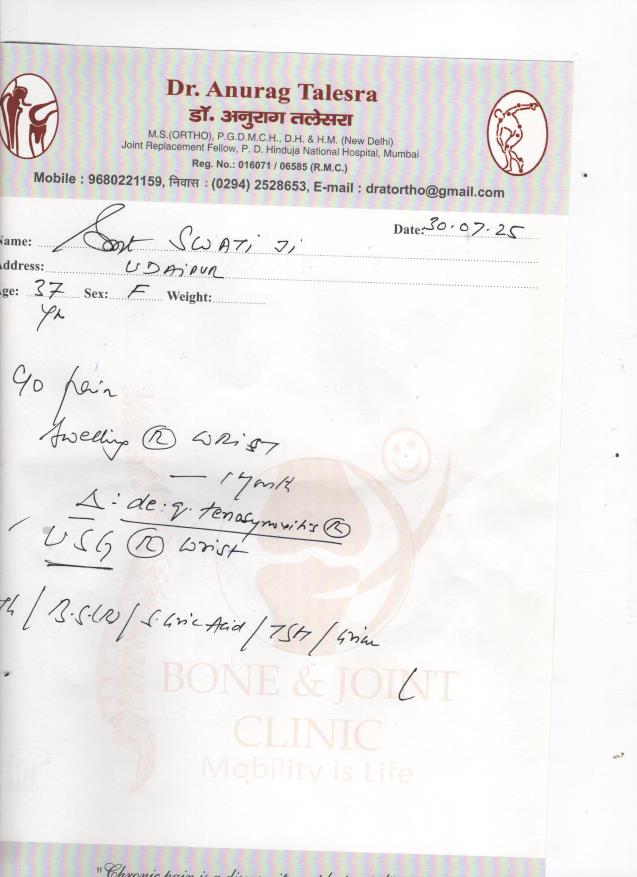 Dr. Anurag Talesra
डॉ. अनुराग तलेसरा
M.S.(ORTHO), P.G.D.M.C.H., D.H. & H.M. (New Delhi)
Joint Replacement Fellow, P. D. Hinduja National Hospital, Mumbai
Reg. No.: 016071 / 06585 (R.M.C.)
Mobile : 9680221159, निवास : (0294) 2528653, E-mail : dratortho@gmail.com
Date: 30.07.25
Name: SWATI JI
Address: UDAIPUR
Age: 37 Sex: F Weight:
Yr
C/o pain
Swelling (R) WRIST
— 1 Month
Δ: de. q. tenosynovitis (R)
USG (R) Wrist
/ B.S.(R) / S. Uric Acid / TSH /
BONE & JOINT
CLINIC
Mobility is Life
"Chronic pain is a